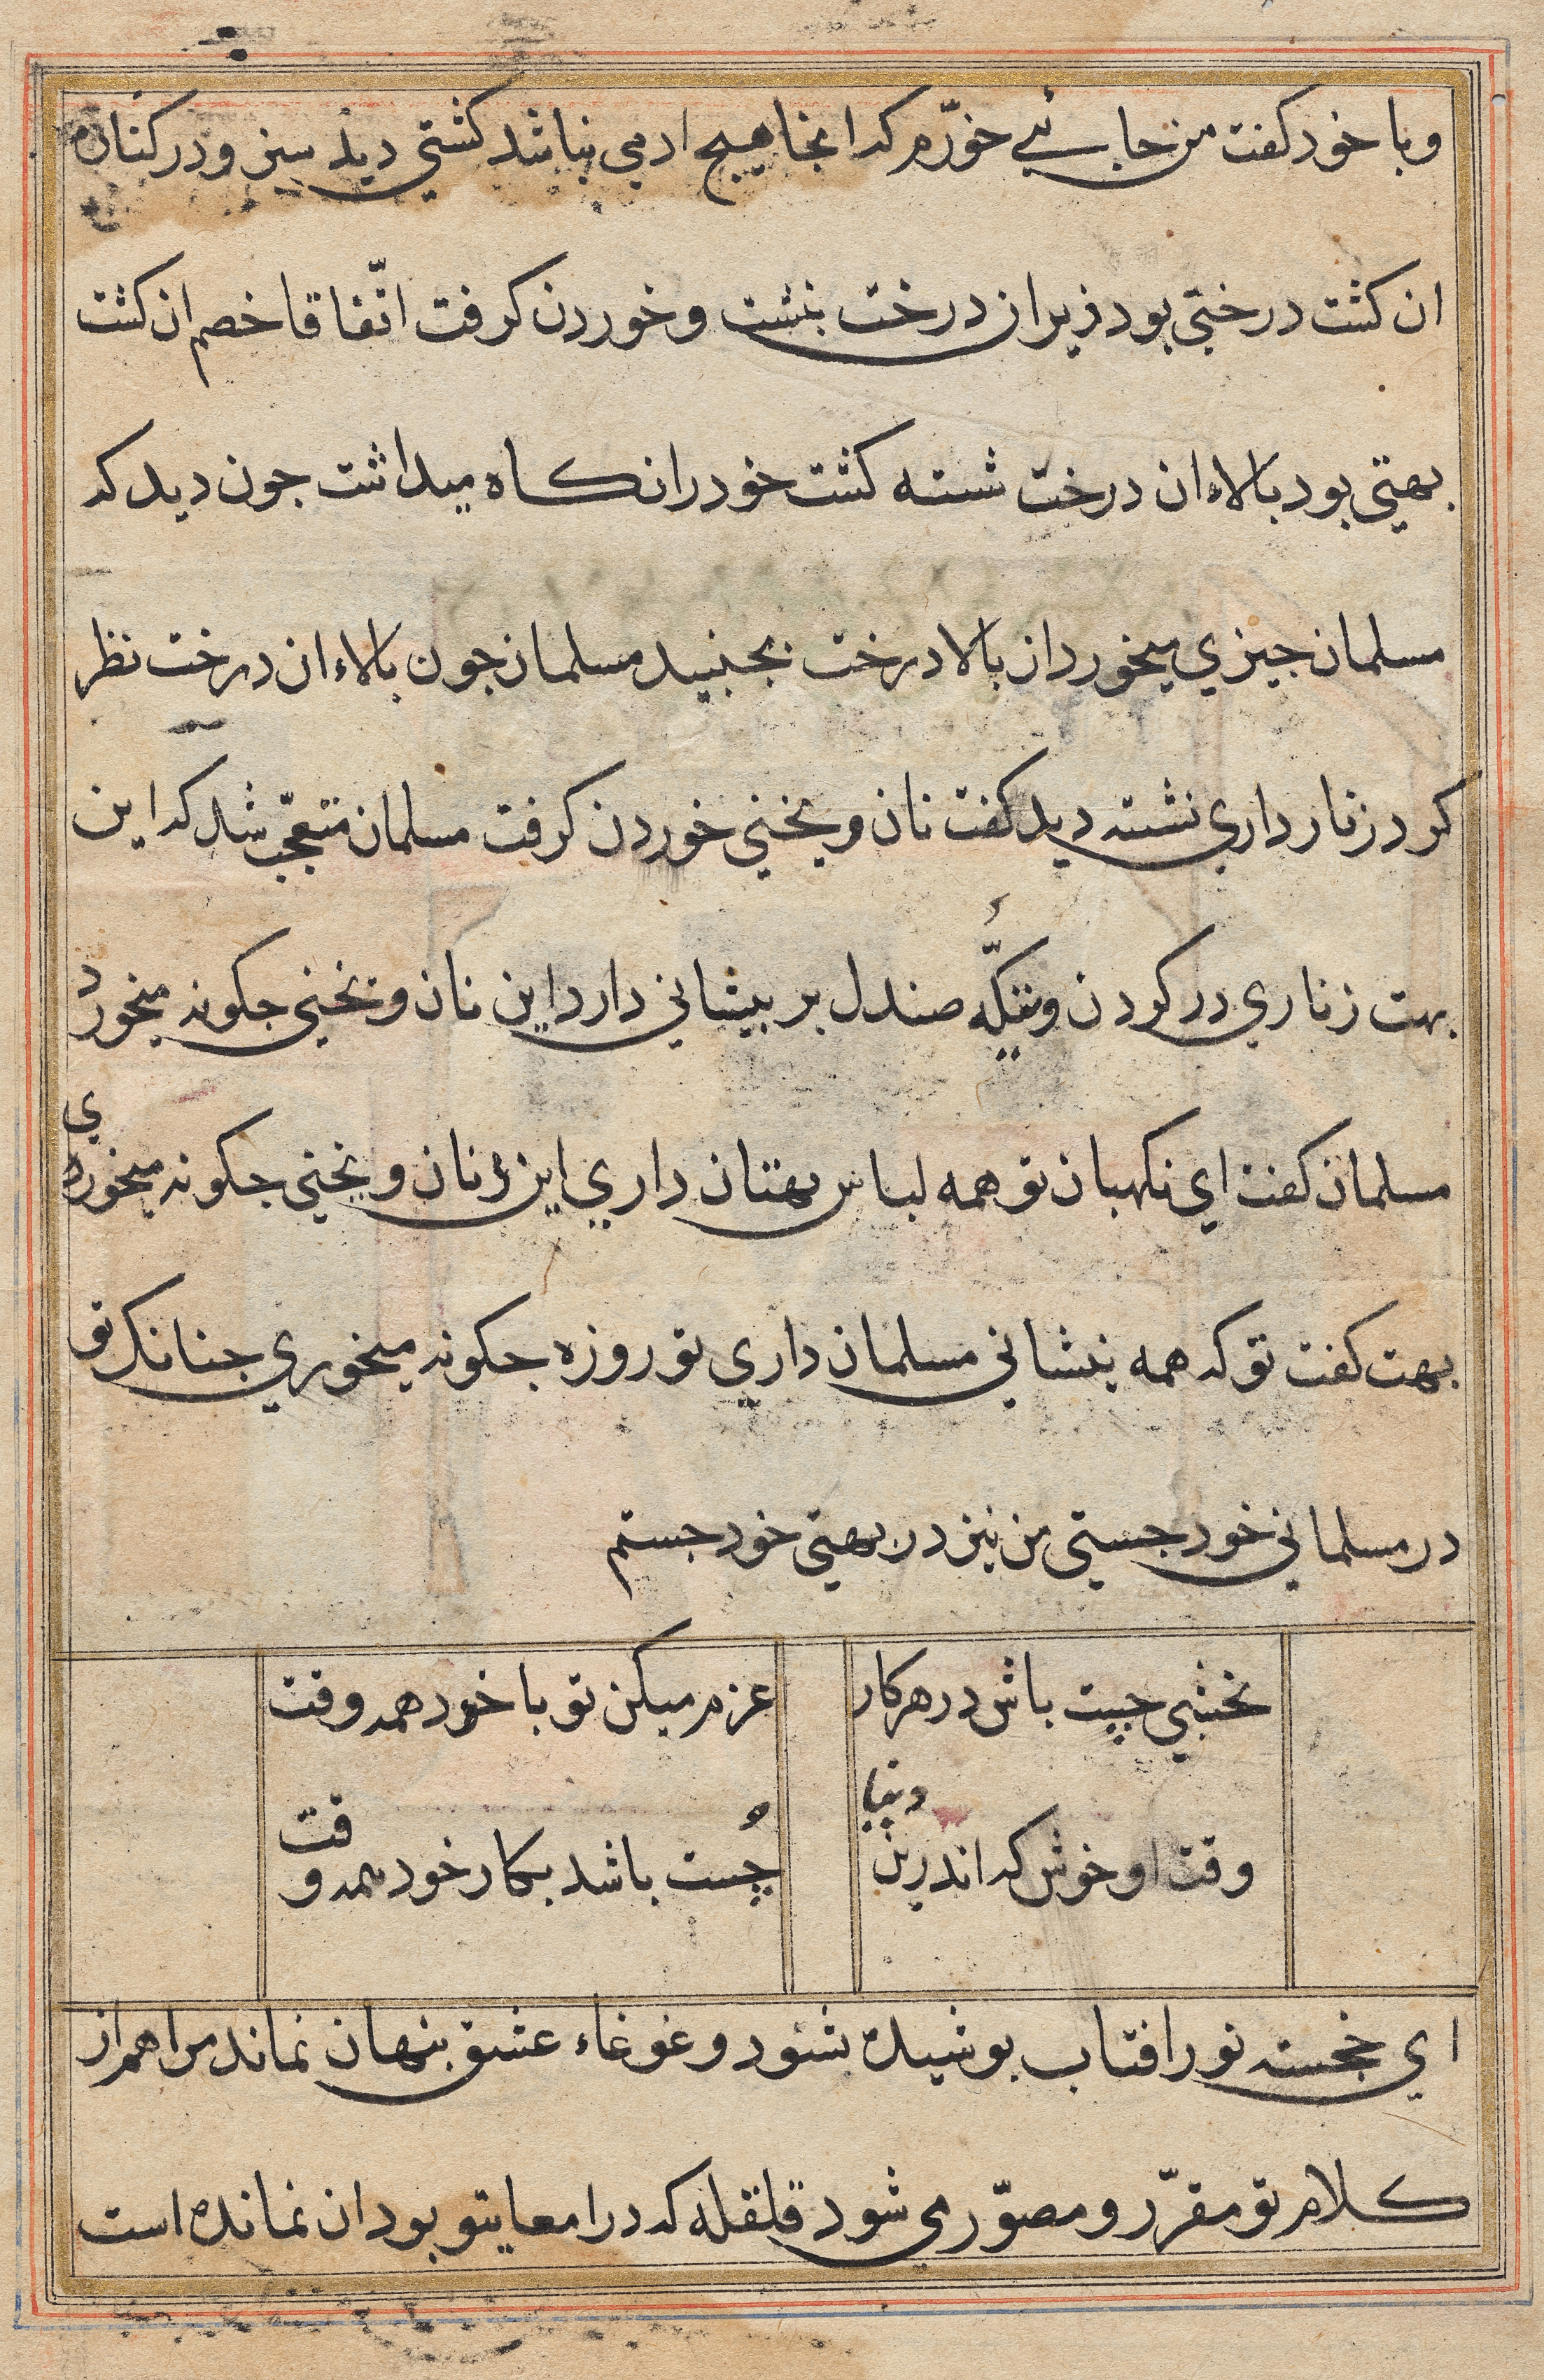 وبا خود كفت من جائے خورم كه انجا هيچ ادمي نباشد كشتي ديد سبز ودر كنارهٔ
ان كشت درختي بود زير ان درخت بنشست وخوردن كرفت اتّفاقا خصم ان كشت
بهتي بود بالاء ان درخت شسته كشت خود را نكاه ميداشت جون ديد كه
مسلمان جيزي ميخورد از بالا درخت بجنبيد مسلمان جون بالاء ان درخت نظر
كرد زنار داري نشسته ديد كفت نان ويخني خوردن كرفت مسلمان متعجّب شد كه اين
بهت زناري در كردن وتيكّه صندل بر بيشاني دارد اين نان ويخني جكونه ميخورد
مسلمان كفت اي نكهبان تو همه لباس بهتان داري اين نان ويخني جكونه ميخوري
بهت كفت تو كه همه بنشاني مسلمان داري تو روزه جكونه ميخوري جنانكه تو
در مسلماني خود جستي من نيز در بهتي خود جستم
نخشبي چيست باش در هر كار عزم ميكن تو با خود همه وقت
وقت او خوش كه اندرين دنيا چُست باشد بكار خود همه وقت
اي خجسته نور افتاب بوشيده نشود وغوغاء عشق بنهان نماند مرا هم از
كلام تو مقرّر ومصوّر مي شود قلقله كه در امعايتو بود ان نمانده است